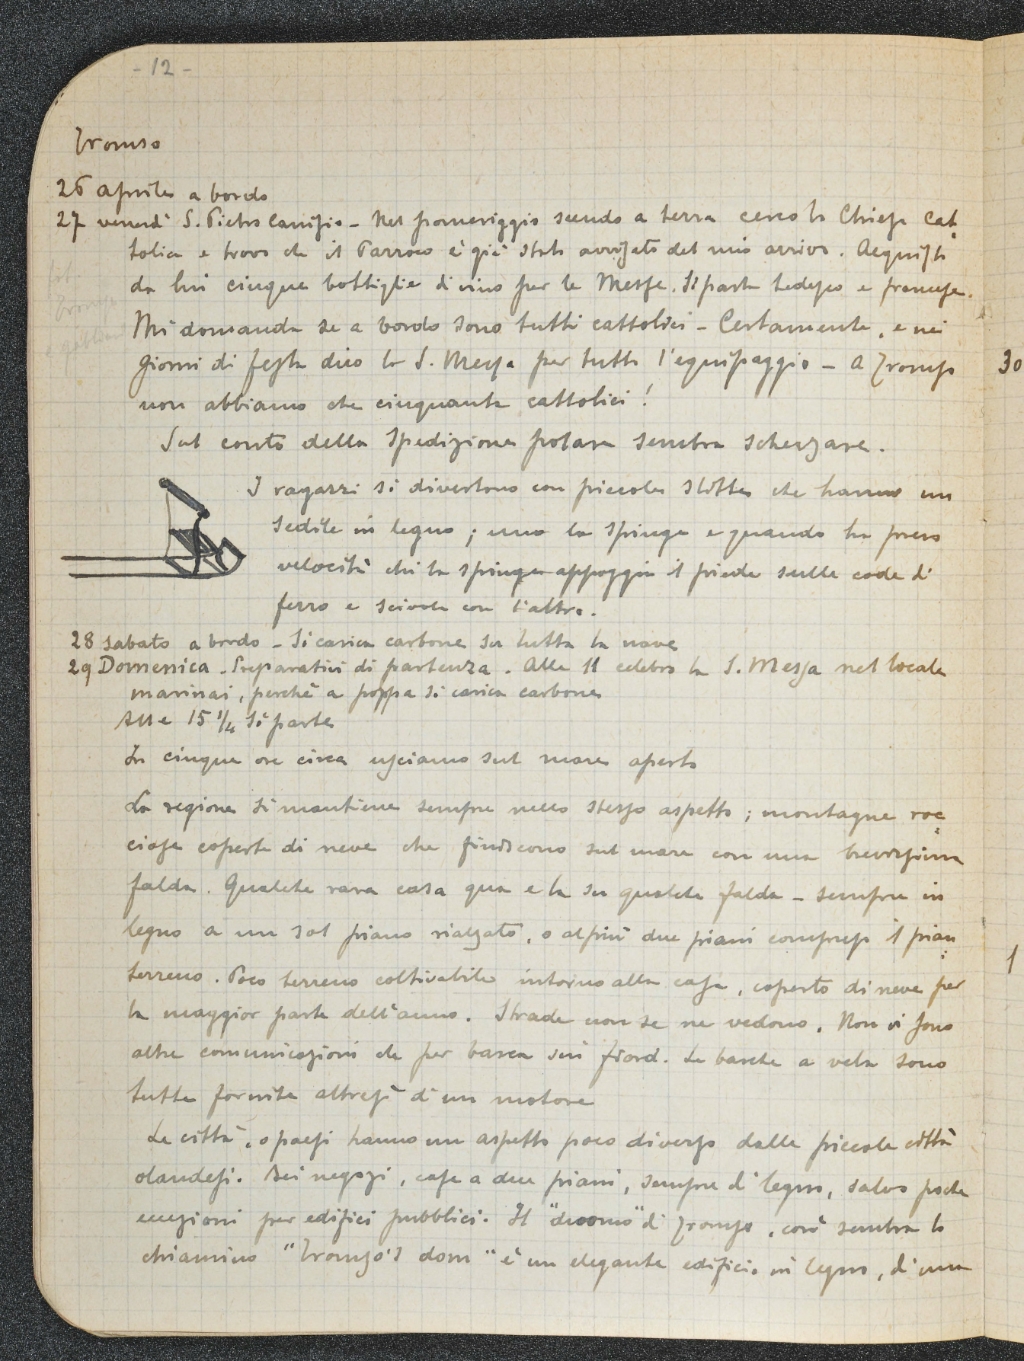 - 12 -
Tromso
26 aprile a bordo
27 venerdì S. Pietro Canisio - Nel pomeriggio scendo a terra cerco la Chiesa Cat-
tolica e trovo che il Parroco è già stato avvisato del mio arrivo. Acquisto
da lui cinque bottiglie di vino per le Messe. Si parla tedesco e francese.
Mi domanda se a bordo sono tutti cattolici - Certamente, e nei
giorni di festa dico la S. Messa per tutto l'equipaggio - A Tromso
non abbiamo che cinquanta cattolici!
Sul conto della Spedizione polare sembra scherzare.
I ragazzi si divertono con piccole slitte che hanno un
sedile in legno; uno la spinge e quando ha preso
velocità chi la spinge appoggia il piede sulle code di
ferro e scivola con l'altro.
28 sabato a bordo - Si carica carbone su tutta la nave
29 Domenica. Preparativi di partenza. Alle 11 celebro la S. Messa nel locale
marinai, perchè a poppa si carica carbone
Alle 15 1/4 si parte
In cinque ore circa usciamo sul mare aperto
La regione si mantiene sempre nello stesso aspetto; montagne roc-
ciose coperte di neve che finiscono sul mare con una brevissima
falda. Qualche rara casa qua e la su qualche falda - sempre in
legno a un sol piano rialzato, o al più due piani compreso il pian
terreno. Poco terreno coltivabile intorno alla casa, coperto di neve per
la maggior parte dell'anno. Strade non se ne vedono. Non vi sono
altre comunicazioni che per barca sui fiord. Le barche a vela sono
tutte fornite altresì di un motore
Le città, o paesi hanno un aspetto poco diverso dalle piccole città
olandesi. Bei negozi, case a due piani, sempre di legno, salvo poche
eccezioni per edifici pubblici. Il "duomo" di Tromso, così sembra lo
chiamino "Tromso's dom" è un elegante edificio in legno, di una
30
1